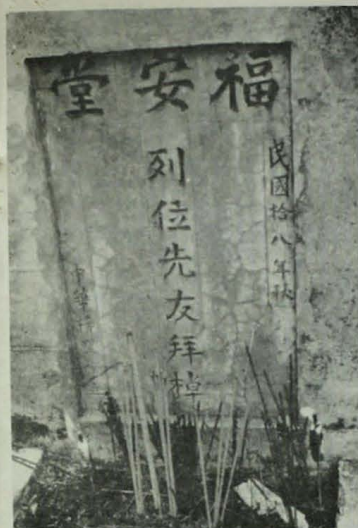 福安堂
民國拾八年秋
列位先友拜棹